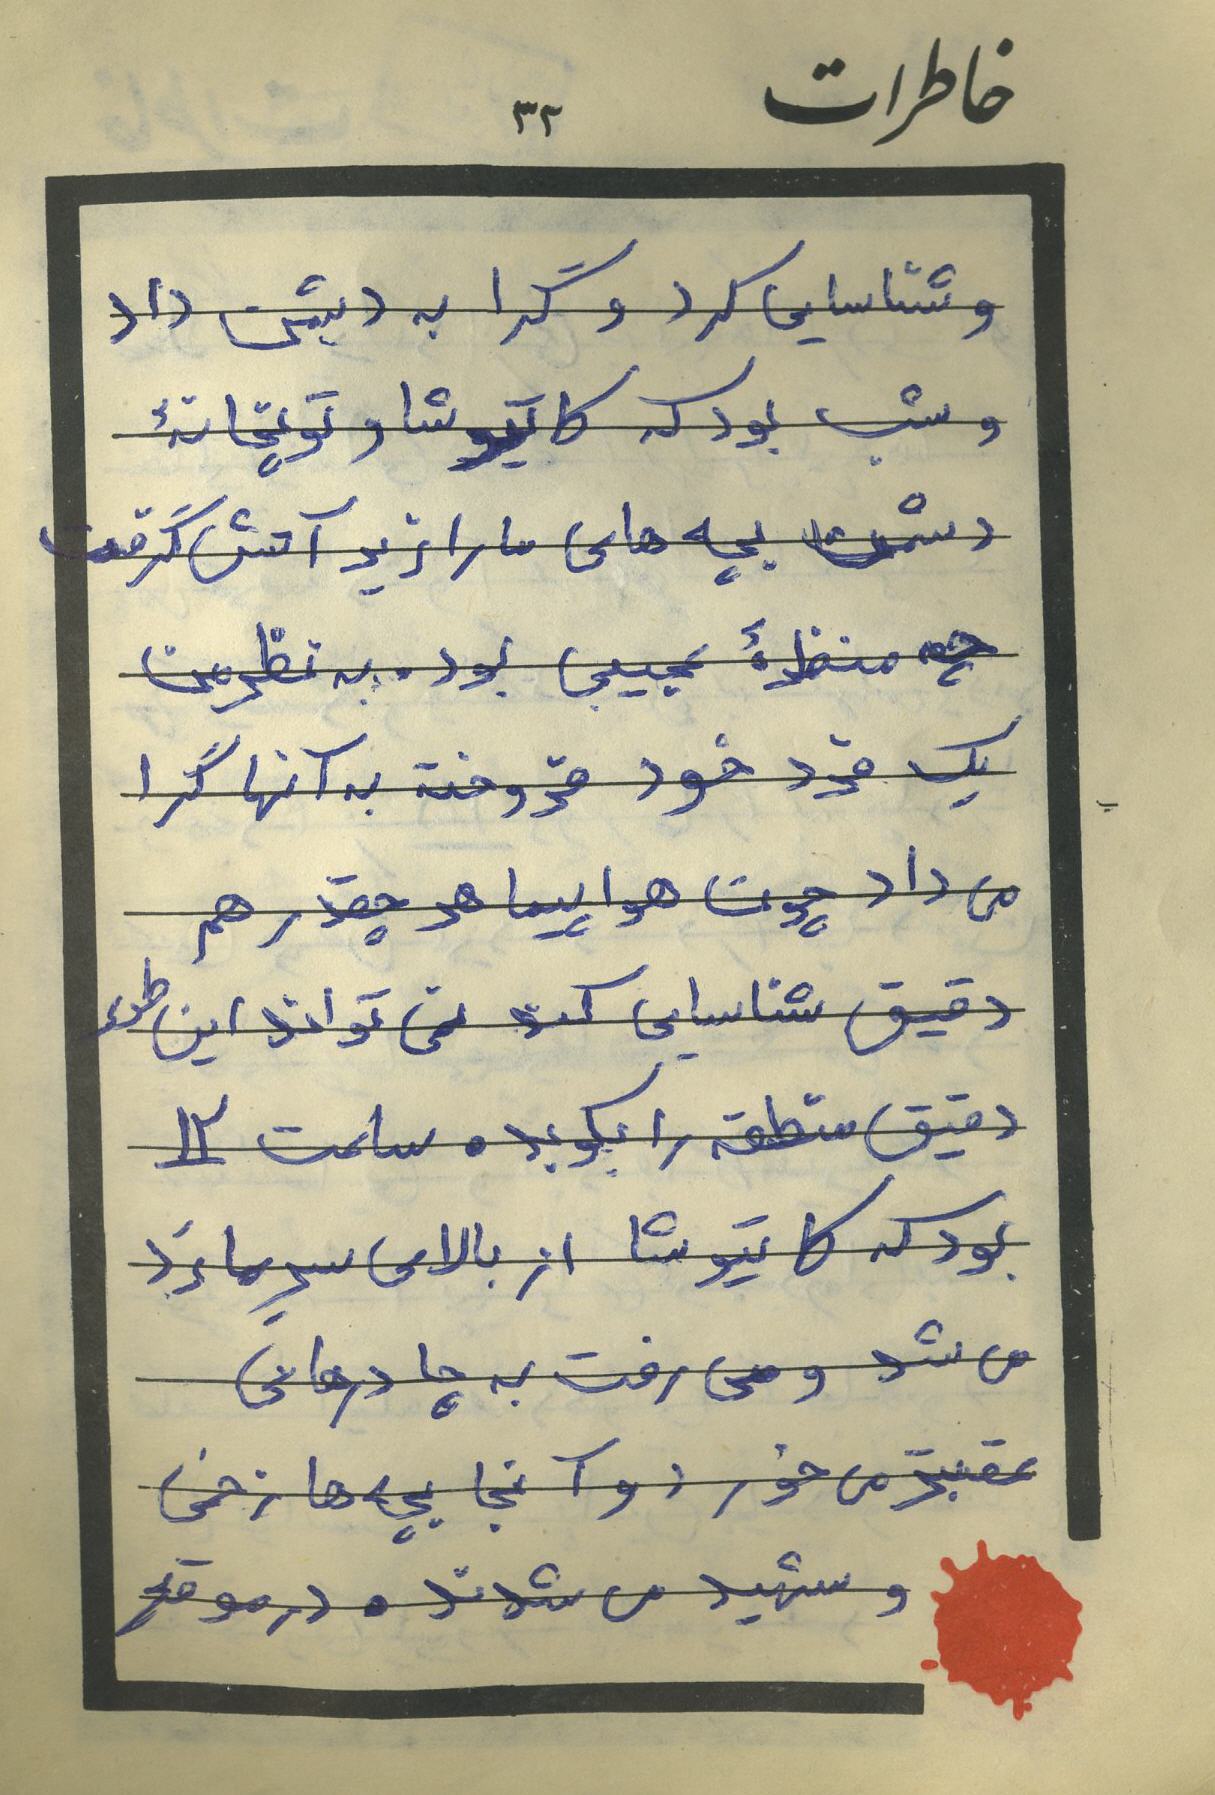 خاطرات
۳۲
و شناسایی کرد و گرا به دشمن داد
و شب بود که کاتیوشا و توپخانهٔ
دشمن بچه های ما را زیر آتش گرفت
چه منظرهٔ عجیبی بود. به نظر من
یک فرد خود فروخته به آنها گرا
می داد چون هواپیما هر چقدر هم
دقیق شناسایی کند نمی تواند این طور
دقیق منطقه را بکوبد. ساعت ۱۲
بود که کاتیوشا از بالای سر ما رد
می شد و می رفت به چادرهای
عقبتر می خورد و آنجا بچه ها زخمی
و شهید می شدند. در موقع